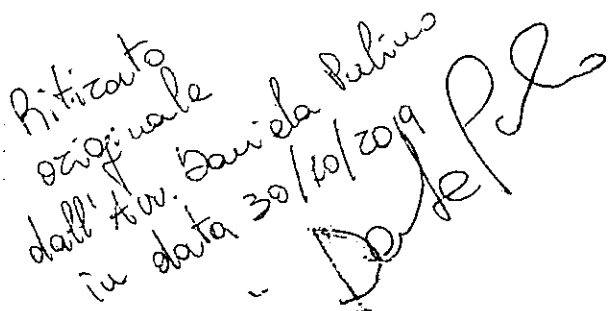 Ritirato
originale
dall'Avv. Daniela Pulino
in data 30/10/2019